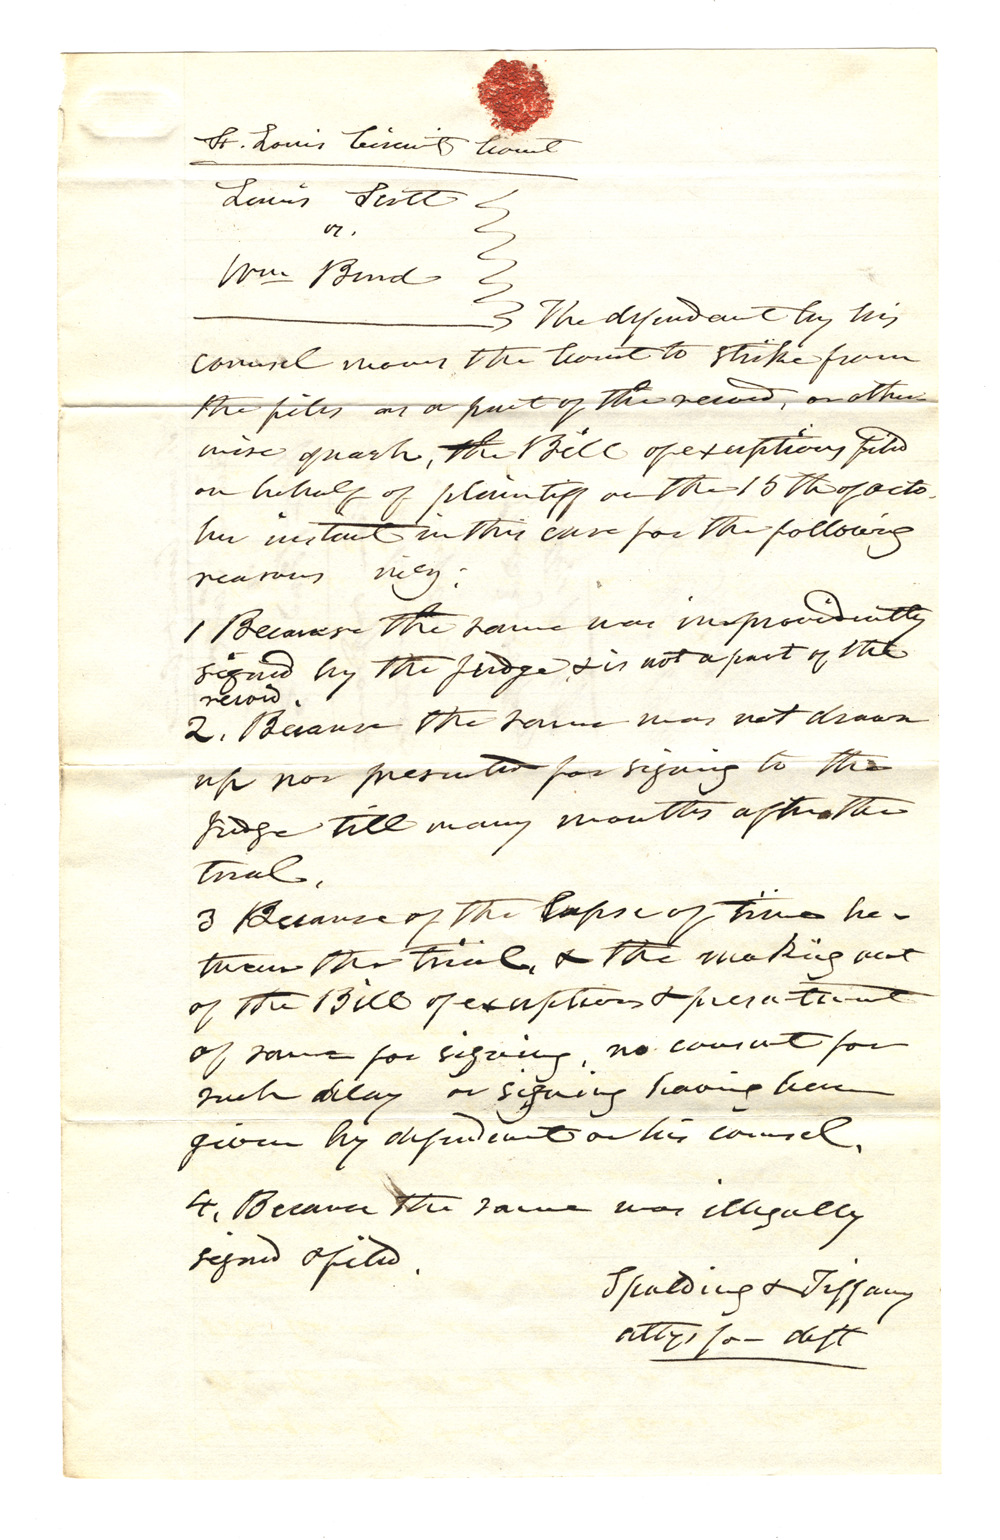 St. Louis Circuit Court
Louis Scott
vs.
Wm Burd
The defendant by his
counsel moves the Court to strike from
the files as a part of the record, or other
wise quash, the Bill of exceptions filed
on behalf of plaintiff on the 15th of octo-
ber instant in this case for the following
reasons viz:
1 Because the same was improvidently
signed by the judge, & is not a part of the
record.
2. Because the same was not drawn
up nor presented for signing to the
judge till many months after the
trial.
3 Because of the lapse of time be-
tween the trial, & the making out
of the Bill of exceptions & presentment
of same for signing, no consent for
such delay or signing having been
given by defendant or his counsel.
4. Because the same was illegally
signed & filed.
Spalding & Tiffany
attys for deft